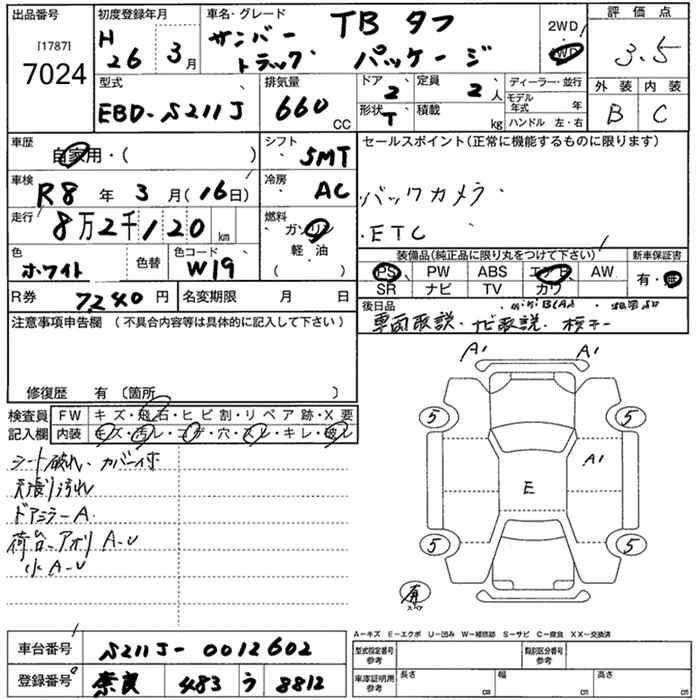 出品番号 初度登録年月 車名・グレード 評価点
[1787] H 26 3月 サンバートラック TB タフパッケージ 2WD 4WD 3.5
7024
型式 排気量 ドア 定員 ディーラー・並行 外装 内装
EBD-S211J 660 CC 2 2人 モデル年式 年 B C
形状 T 積載 kg ハンドル 左・右
車歴 自家用・( ) シフト 5MT セールスポイント(正常に機能するものに限ります)
車検 R8年 3月(16日) 冷房 AC バックカメラ
走行 8万2千120km 燃料 ガソリン 軽油 ( ) ETC
色 ホワイト 色替 色コード W19 装備品(純正品に限り丸をつけて下さい) 新車保証書
PS PW ABS エアB AW 有・無
SR ナビ TV カワ
R券 7240円 名変期限 月 日 後日品
注意事項申告欄(不具合内容等は具体的に記入して下さい) 車両取説・ナビ取説・
修復歴 有〔箇所 〕
検査員 FW キズ・飛石・ヒビ割・リペア跡・X要
記入欄 内装 キズ・汚レ・コゲ・穴・スレ・キレ・破レ
シート破れ・カバー付
天張り汚れ
ドアミラーA
荷台・アオリA-U
小A-U
A1 A1
5 5
A1
E
5 5
有
スペア
A-キズ E-エクボ U-凹み W-補修跡 S-サビ C-腐食 XX-交換済
車台番号 S211J-0012602 型式指定番号 参考 類別区分番号 参考
登録番号 奈良 483 う 8812 車庫証明用 参考 長さ cm 幅 cm 高さ cm